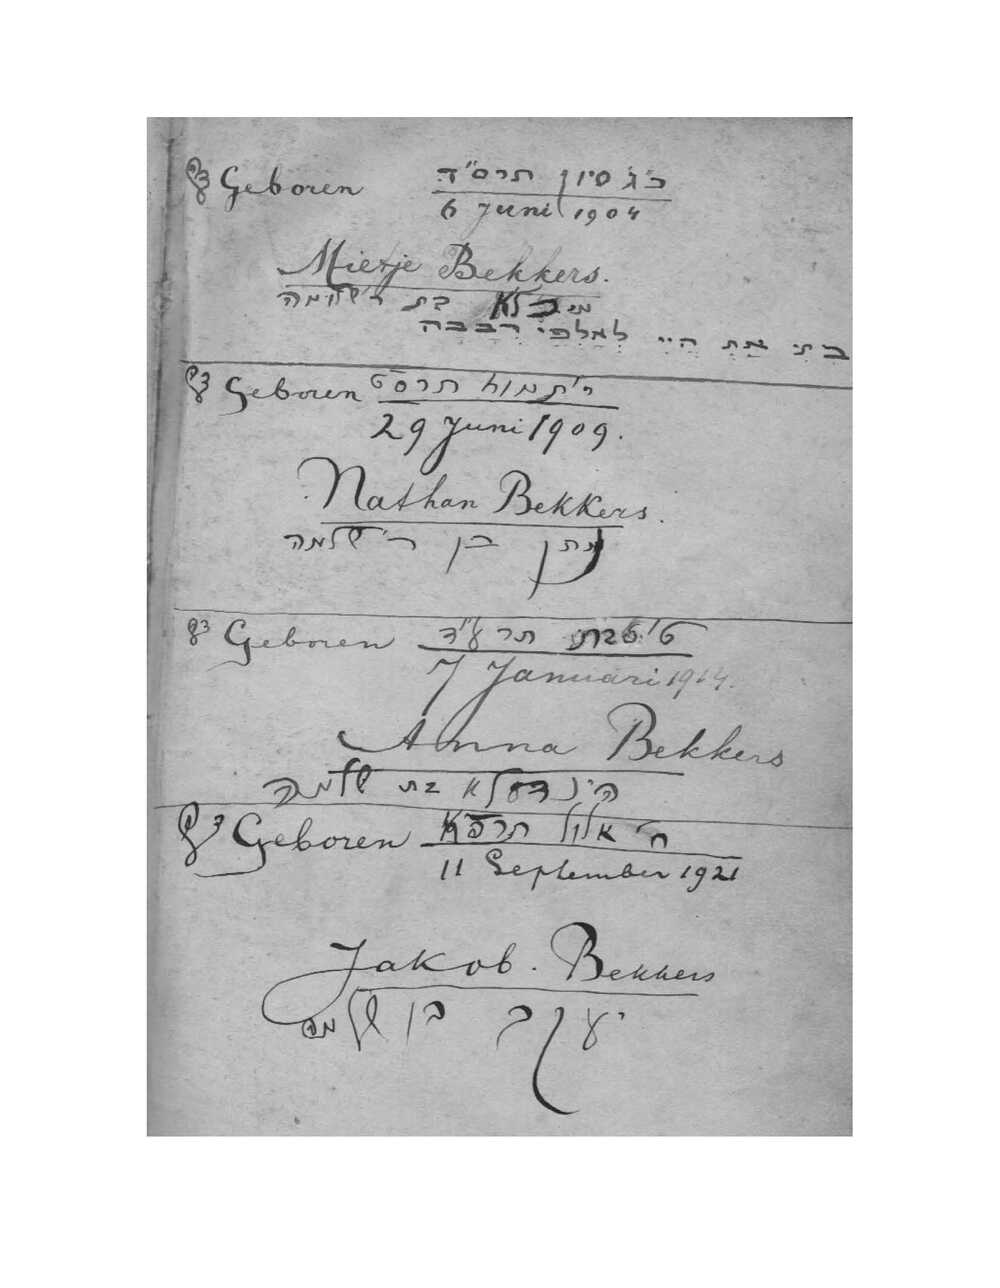 Geboren כ"ג סיון תרס"ד
6 Juni 1904
Mietje Bekkers.
בת ר' שלומה
לאלפי רבבה
Geboren י' תמוז תרס"ט
29 Juni 1909.
Nathan Bekkers.
נתן בן ר' שלמה
Geboren ט' טבת תרע"ד
7 Januari 1914.
Anna Bekkers
הינדעלא בת שלמה
Geboren ח' אלול תרפ"א
11 September 1921
Jakob. Bekkers
יעקב בן שלמה